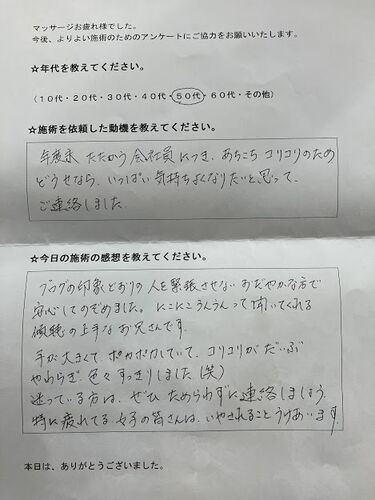 マッサージお疲れ様でした。
今後、よりよい施術のためのアンケートにご協力をお願いいたします。
☆年代を教えてください。
(10代・20代・30代・40代・50代・60代・その他)
☆施術を依頼した動機を教えてください。
年度末 たたかう会社員につき、あちこち コリコリのため
どうせなら、いっぱい 気持ちよくなりたいと思って、
ご連絡しました。
☆今日の施術の感想を教えてください。
ブログの印象どおりの 人を緊張させない おだやかな方で
安心してのぞめました。 にこにこうんうんって聞いてくれる
傾聴の上手な お兄さんです。
手が大きくて、ポカポカしていて、コリコリが だいぶ
やわらぎ、色々すっきりしました(笑)
迷っている方は、ぜひ ためらわずに連絡しましょう。
特に疲れてる 女子の皆さんは、いやされること うけあいます。
本日は、ありがとうございました。